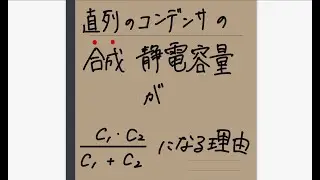 直列のコンデンサの
合成 静電容量
が
C₁・C₂
C₁ + C₂ になる理由